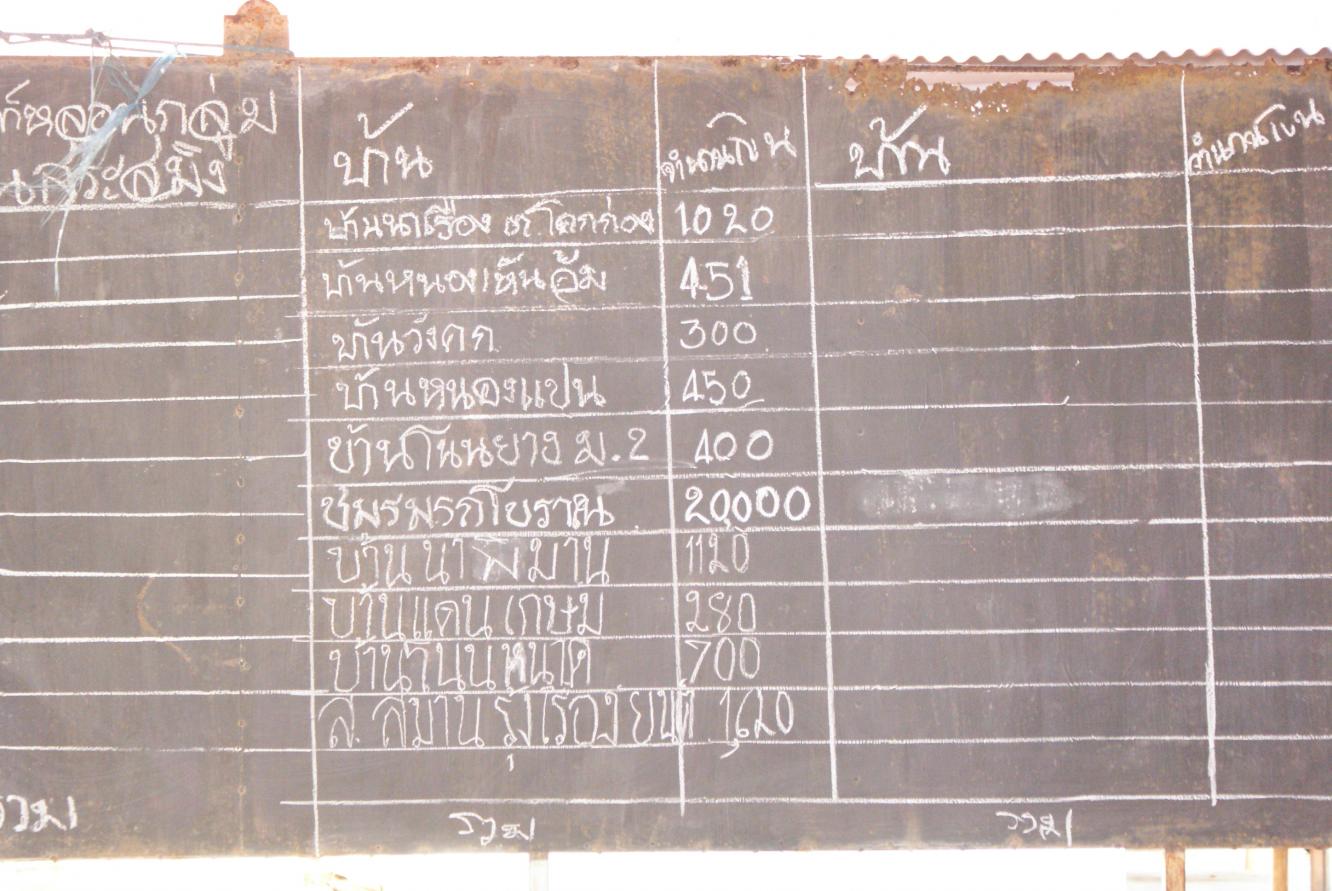 หลอนกลุ่ม
สระสมิง
บ้าน จำนวนเงิน บ้าน จำนวนเงิน
บ้านนาเรือง ต.โคกก่อง 1020
บ้านหนองเหินอุ้ม 451
บ้านวังคก 300
บ้านหนองแปน 450
บ้านโนนยาง ม.2 400
ชมรมรถโบราณ 20,000
บ้านนาพิมาน 1120
บ้านแดนเกษม 280
บ้านโนนหนาด 700
ส. สมานรุ่งเรืองยนต์ 1,620
รวม รวม รวม